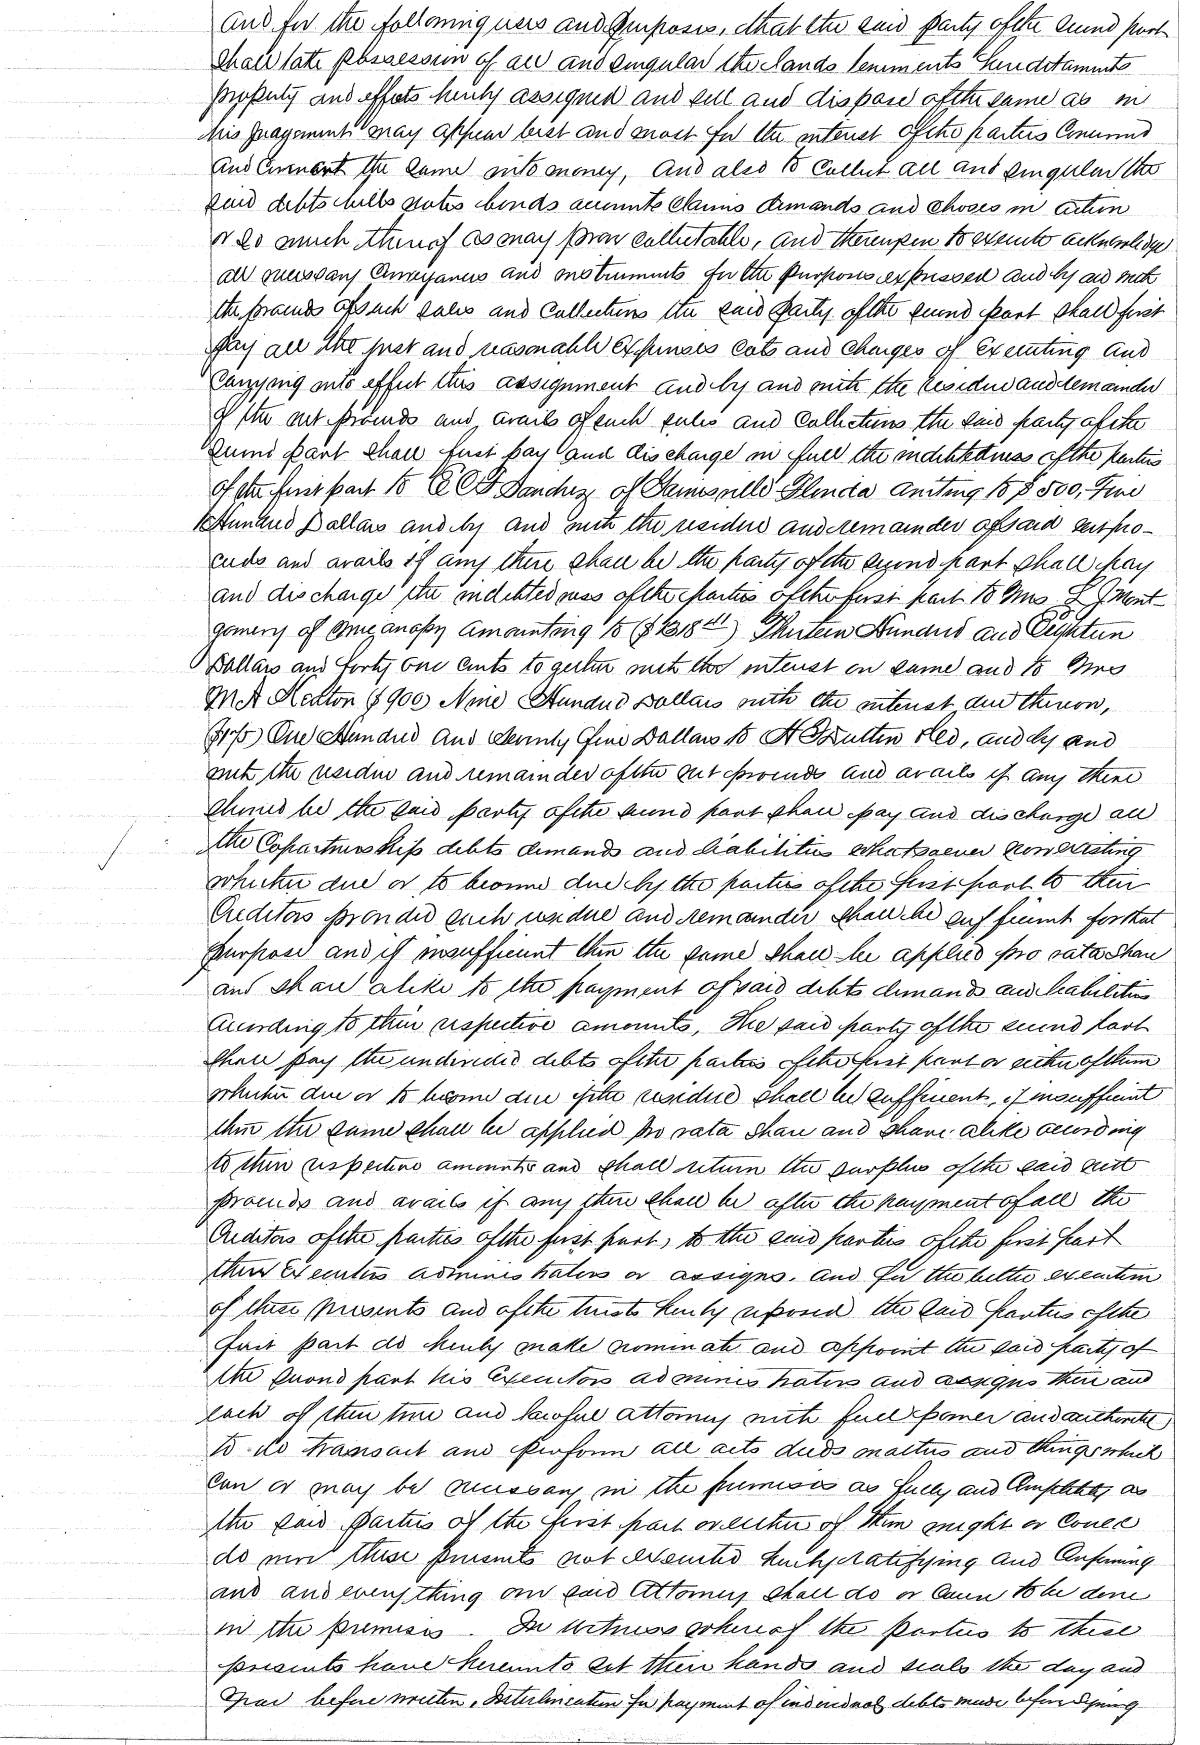 and for the following uses and purposes, that the said party of the second part
shall take possession of all and singular the lands tenements hereditaments
property and effects hereby assigned and sell and dispose of the same as in
his judgement may appear best and most for the interest of the parties concerned
and convert the same into money, and also to collect all and singular the
said debts bills notes bonds accounts claims demands and choses in action
or so much thereof as may prove collectable, and thereupon to execute acknowledge
all necessary conveyances and instruments for the purposes expressed and by and with
the proceeds of such sales and collections the said party of the second part shall first
pay all the just and reasonable expenses costs and charges of executing and
carrying into effect this assignment and by and with the residue and remainder
of the net proceeds and avails of such sales and collections the said party of the
second part shall first pay and discharge in full the indebtedness of the parties
of the first part to E C F Sanchez of Gainesville Florida amting to $500. Five
Hundred Dollars and by and with the residue and remainder of said net pro-
ceeds and avails if any there shall be the party of the second part shall pay
and discharge the indebtedness of the parties of the first part to Mrs L J Mont-
gomery of Micanopy amounting to ($1318 41) Thirteen Hundred and Eighteen
Dollars and forty one cents together with the interest on same and to Mrs
M A ($900) Nine Hundred Dollars with the interest due thereon,
($175) One Hundred and Seventy five Dollars to H and by and
with the residue and remainder of the net proceeds and avails if any there
should be the said party of the second part shall pay and discharge all
the Copartnership debts demands and liabilities whatsoever now existing
whether due or to become due by the parties of the first part to their
Creditors provided such residue and remainder shall be sufficient for that
purpose and if insufficient then the same shall be applied pro rata share
and share alike to the payment of said debts demands and liabilities
according to their respective amounts, The said party of the second part
shall pay the undivided debts of the parties of the first part or either of them
whether due or to become due if the residue shall be sufficient, if insufficient
then the same shall be applied pro rata share and share alike according
to their respective amounts and shall return the surplus of the said nett
proceeds and avails if any there shall be after the payment of all the
Creditors of the parties of the first part, to the said parties of the first part
their Executors administrators or assigns. and for the better execution
of these presents and of the trusts hereby reposed the said parties of the
first part do hereby make nominate and appoint the said party of
the second part his Executors administrators and assigns there and
each of their true and lawful attorney with full power and authority
to do transact and perform all acts deeds matters and things which
can or may be necessary in the premises as fully and completely as
the said parties of the first part or either of them might or could
do were these presents not executed hereby ratifying and confirming
and and everything our said Attorney shall do or cause to be done
in the premises. In witness whereof the parties to these
presents have hereunto set their hands and seals the day and
year before written, Interlineation for payment of individual debts made before signing